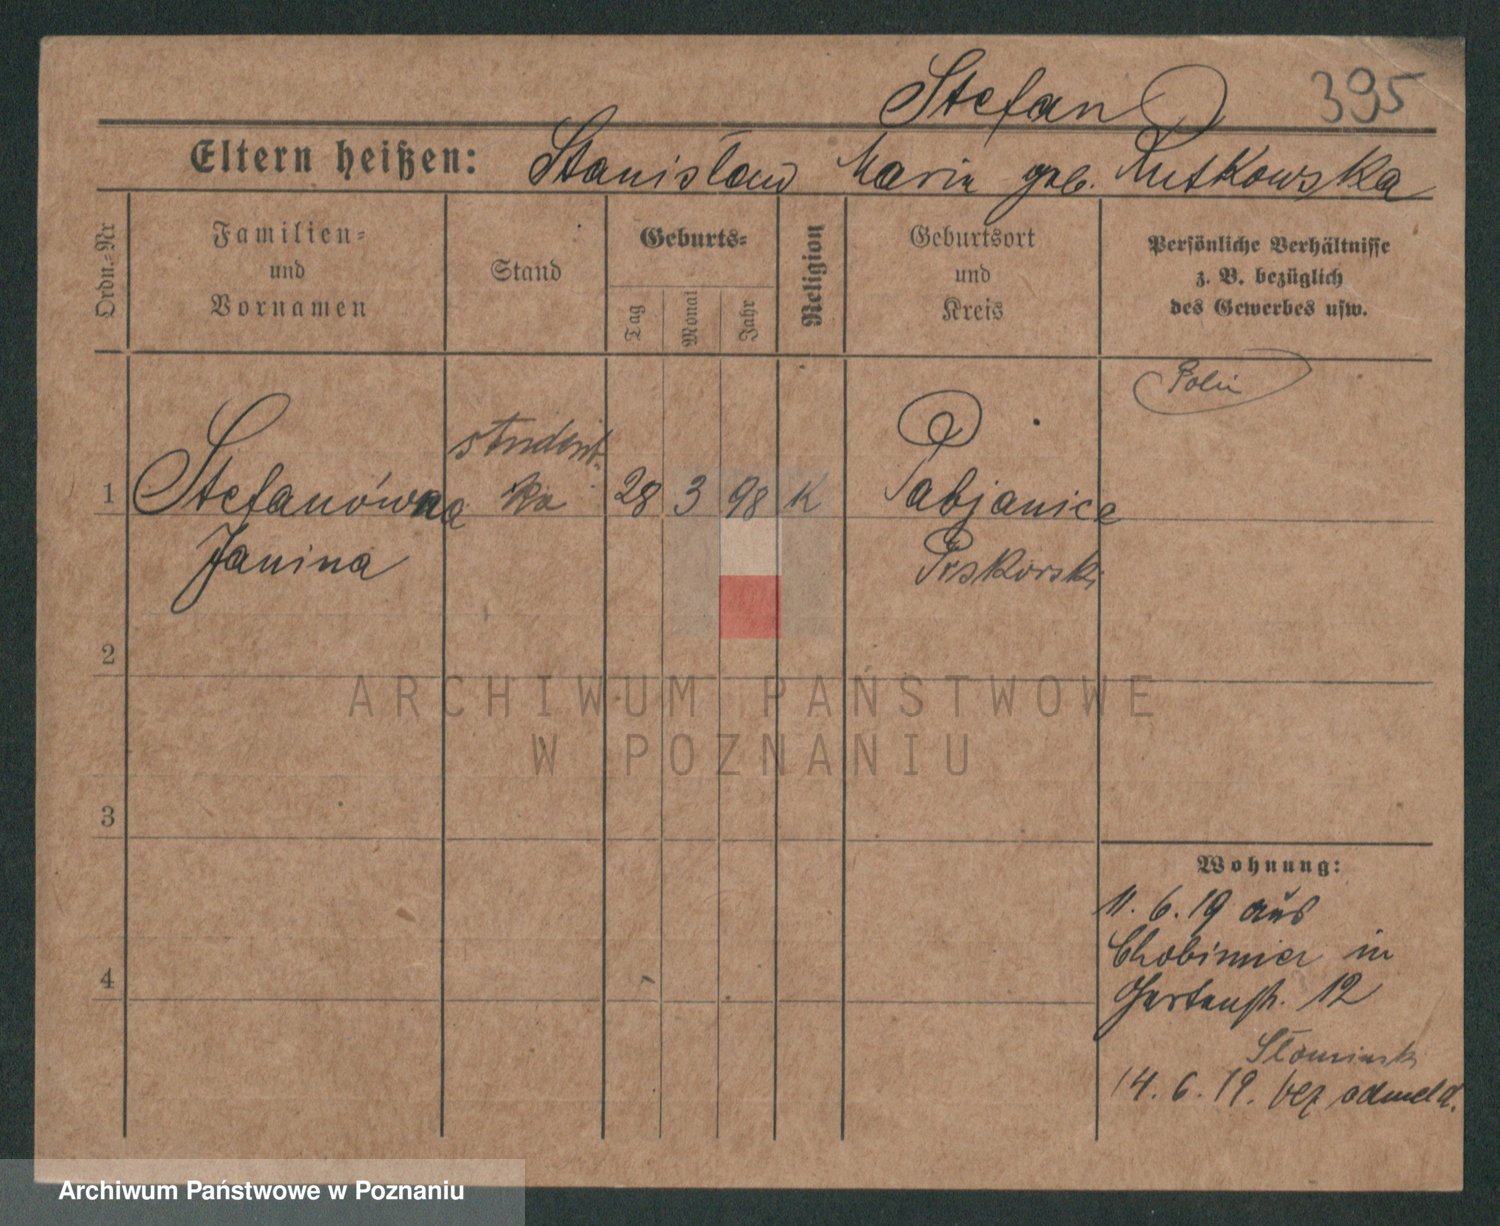 Stefan 395
Eltern heißen: Stanisław Maria geb. Rutkowska
Ordn.-Nr
Familien-
und
Vornamen
Stand
Geburts-
Tag
Monat
Jahr
Religion
Geburtsort
und
Kreis
Persönliche Verhältnisse
z. B. bezüglich
des Gewerbes usw.
1
Stefanówna
Janina
student-
ka
28 3 98 K
Pabjanice
2
3
4
Wohnung:
11. 6. 19 aus
in
Gartenstr. 12
14. 6. 19. bez odmeld.
ARCHIWUM PAŃSTWOWE
W POZNANIU
Archiwum Państwowe w Poznaniu